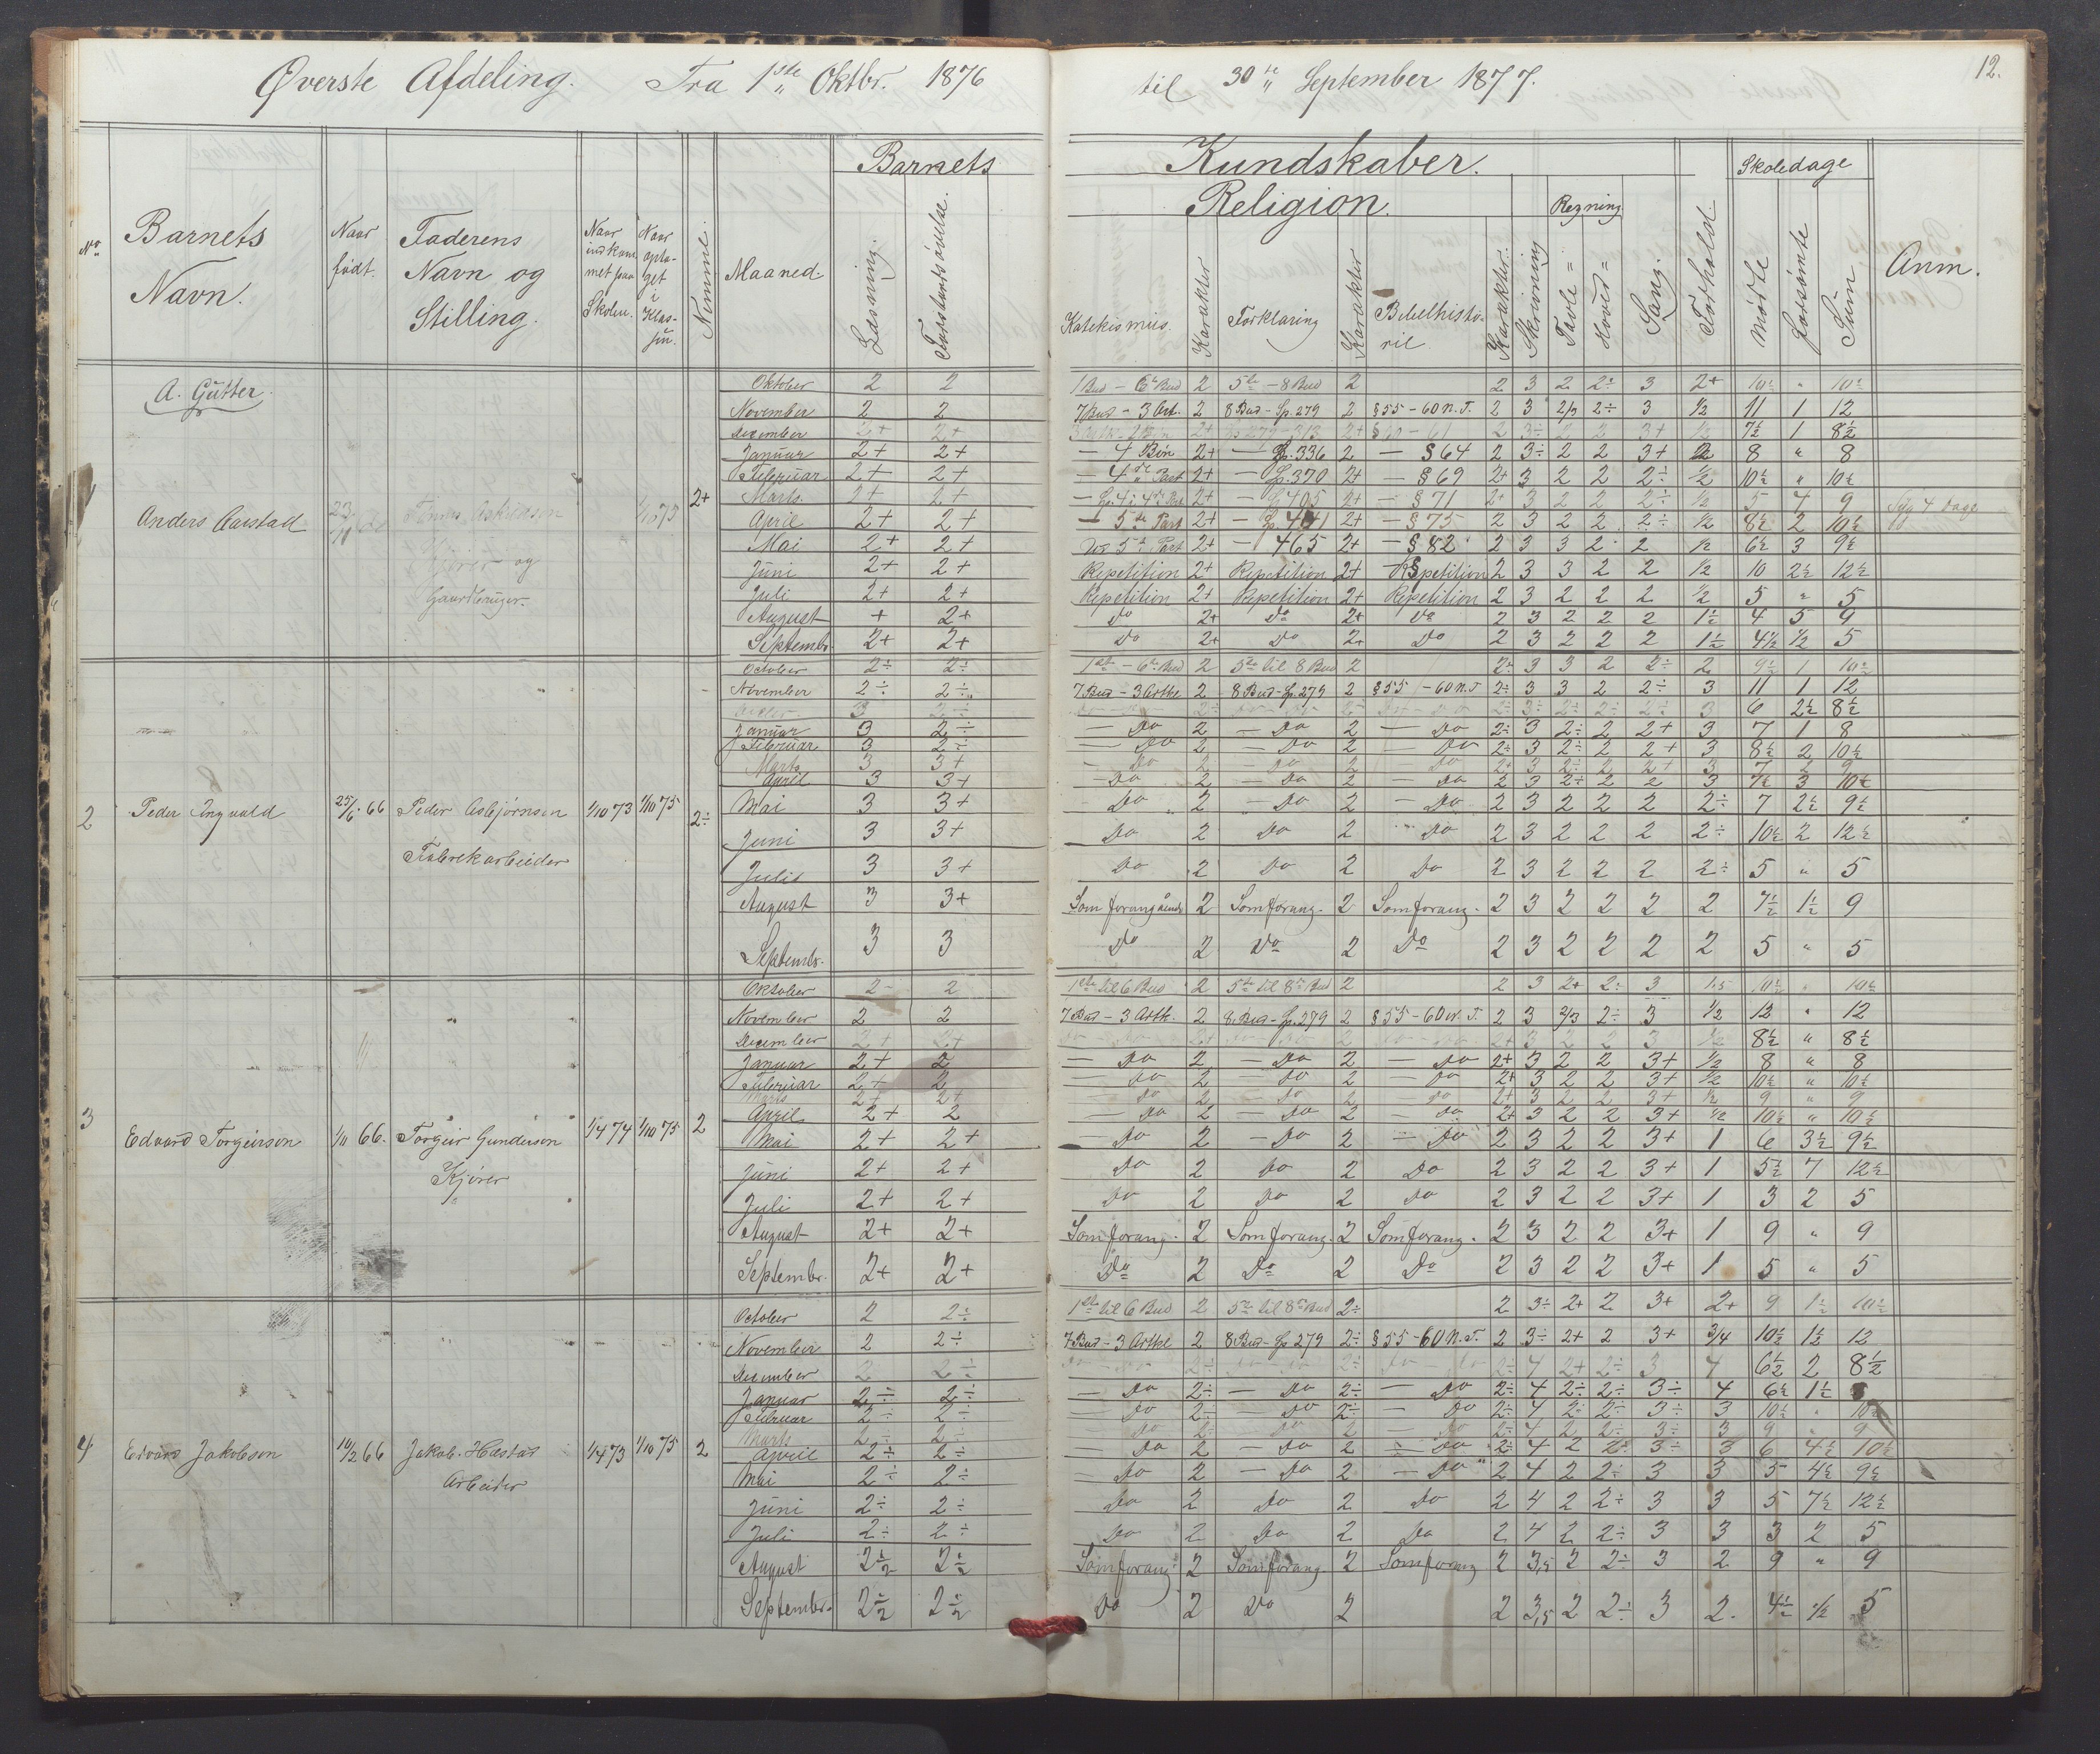 Øverste Afdeling. Fra 1ste Oktbr. 1876 til 30te September 1877. 12.
Barnets Kundskaber. Skoledage
Religion. Regning
No Barnets Navn. Naar født. Faderens Navn og Stilling. Naar indkommet paa Skolen. Naar optaget i Klassen. Nummer. Maaned. Læsning. Forstandsøvelse. Katekismus. Karakter Forklaring Karakter Bibelhistorie Karakter. Skrivning Tavle= Hoved= Sang. Forhold. Mødte Forsømte Sum Anm.
A. Gutter.
1 Anders Aarstad 1/10 73 2+
Kjører og
Gaardbruger.
Oktober 2 2 1 Bud - 6te Bud 2 5te - 8 Bud 2 2 3 2 2÷ 3 2+ 10½ " 10½
November 2 2 7 Bud - 3 Art. 2 8 Bud - Sp. 279 2 § 55 - 60 N.T. 2 3 2/3 2÷ 3 ½ 11 1 12
December 2+ 2+ 2+ 2+ 2 3÷ 2 2 3+ ½ 7½ 1 8½
Januar 2+ 2+ - 4 Bøn 2+ - Sp. 336 2 - § 64 2 3÷ 2 2 3+ 8 " 8
Februar 2+ 2+ - 4de Part 2+ - Sp. 370 2+ - § 69 2+ 3 2 2 2÷ ½ 10½ " 10½
Marts 2+ 2+ 2+ 405 2+ - § 71 2+ 3 2 2 2÷ ½ 5 4 9 Syg 4 Dage
April 2+ 2+ - 5te Part 2+ - Sp. 2+ - § 75 2 3 2 2 2÷ ½ 8½ 2 10½
Mai 2+ 2+ 5te Part 2+ - 465 2+ - § 82 2 3 3 2 2 ½ 6½ 3 9½
Juni 2+ 2+ Repetition 2+ Repetition 2+ Repetition 2 3 3 2 2 ½ 10 2½ 12½
Juli 2+ 2+ Repetition 2+ Repetition 2+ Repetition 2 3 2 2 2 ½ 5 " 5
August + 2+ Do 2+ Do 2+ Do 2 3 2 2 2 1½ 4 5 9
Septembr 2+ 2+ Do 2+ Do 2+ Do 2 3 2 2 2 1½ 4½ ½ 5
2 Peder Ingvald 25/6. 66 Peder Asbjørnsen 1/10 73 1/10 75 2÷
Fabrikarbeider
October 2÷ 2÷ 1ste - 6te Bud 2 5te til 8 Bud 2 2÷ 3 3 2 2÷ 2 9½ 1 10½
November 2÷ 2÷ 7 Bud - 3 Artkl 2 8 Bud - Sp. 279 2 § 55 - 60 N.T 2÷ 3 3 2 2÷ 3 11 1 12
3 2÷ 3÷ 2÷ 2÷ 2÷ 3 6 2½ 8½
Januar 3 2÷ - Do 2 - Do 2 - Do 2÷ 3 2÷ 2 2+ 3 7 1 8
Februar 3 2÷ - Do 2 - Do 2 - Do 2÷ 3 2÷ 2 2+ 3 8½ 2 10½
Marts 3 3+ - Do 2 - Do 2 - Do 2+ 3 2÷ 2 2+ 3 7 2 9
April 3 3+ - Do 2 - Do 2 - Do 2 3 2÷ 2 2 3 7½ 3 10½
Mai 3 3+ - Do 2 - Do 2 - Do 2 3 2 2 2 2÷ 7 2½ 9½
Juni 3 3+ Do 2 Do 2 Do 2 3 2 2 2 2÷ 10½ 2 12½
Juli 3 3+ Do 2 Do 2 Do 2 3 2 2 2 2÷ 5 " 5
August 3 3+ Som forangående 2 Som forang. 2 Som forang. 2 3 2 2 2 2 7½ 1½ 9
Septembr. 3 3 Do 2 Do 2 Do 2 3 2 2 2 2 5 " 5
3 Edvard Torgeirson 1/11 66. Torgeir Gunderson 1/4 74 1/10 75 2
Kjører
Oktober 2 2 1ste til 6 Bud 2 5te til 8de Bud 2 2 3 2+ 2÷ 3 1,5 10½ " 10½
November 2 2 7 Bud - 3 Artk. 2 8 Bud - Sp. 279 2 § 55 - 60 N.T. 2 3 2/3 2÷ 3 ½ 12 " 12
December 2+ 2+ 2+ 3 2 2 3 ½ 8½ " 8½
Januar 2+ 2 - Do 2 - Do 2 - Do 2+ 3 2 2 3+ ½ 8 " 8
Februar 2+ 2 - Do 2 - Do 2 - Do 2+ 3 2 2 3+ ½ 10½ " 10½
Marts 2+ 2+ - Do 2 - Do 2 - Do 2+ 3 2 2 3+ ½ 9 " 9
April 2+ 2 - Do 2 - Do 2 - Do 2+ 3 2 2 3+ ½ 10½ " 10½
Mai 2+ 2+ - Do 2 - Do 2 - Do 2 3 2 2 3+ 1 6 3½ 9½
Juni 2+ 2+ Do 2 Do 2 Do 2 3 2 2 3+ 1 5½ 7 12½
Juli 2+ 2+ Do 2 Do 2 Do 2 3 2 2 3+ 1 3 2 5
August 2+ 2+ Som forang. 2 Som forang. 2 Som forang. 2 3 2 2 3+ 1 9 " 9
Septembr. 2+ 2+ Do 2 Do 2 Do 2 3 2 2 3+ 1 5 " 5
4 Edvard Jakobson 10/2 66 Jakob. Hæstad 1/4 73 1/10 75 2
Arbeider
October 2 2÷ 1ste til 6 Bud 2 5te til 8de Bud 2÷ 2 3÷ 2+ 2 3+ 2+ 9 1½ 10½
November 2 2÷ 7 Bud - 3 Artkl 2 8 Bud - Sp 279 2÷ § 55 - 60 N.T. 2 3÷ 2+ 2 3+ 3/4 10½ 1½ 12
December 2 2÷ 2÷ 2÷ 2÷ 4 2+ 2÷ 3 4 6½ 2 8½
Januar 2÷ 2÷ - Do 2÷ - Do 2÷ - Do 2÷ 4 2÷ 2÷ 3÷ 4 6½ 1½
Februar 2÷ 2÷ - Do 2÷ - Do 2÷ - Do 2÷ 4 2÷ 2÷ 3÷ 3 10½ " 10½
Marts 2÷ 2÷ - Do 2÷ - Do 2 - Do 2÷ 4 2 2÷ 3÷ 3 9 " 9
April 2÷ 2÷ - Do 2 - Do 2 - Do 2÷ 4 2 2÷ 3÷ 3 6 4½ 10½
Mai 2÷ 2÷ - Do 2 - Do 2 - Do 2 4 2 2÷ 3 3 5 4½ 9½
Juni 2÷ 2÷ Do 2 Do 2 Do 2 4 2 2÷ 3 3 5 7½ 12½
Juli 2÷ 2÷ Do 2 Do 2 Do 2 4 2 2÷ 3 3 3 2 5
August 2½ 2½ Som forang. 2 Som forang 2 Som forang 2 3,5 2 2÷ 3 2 9 " 9
Septembr. 2½ 2½ Do 2 Do 2 2 3,5 2 2÷ 3 2. 4½ ½ 5